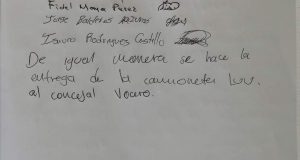 Fidel Maya Perez
Jose
Isauro Rodriguez Castillo
De igual manera se hace la
entrega de la camioneta luv.
al concejal Vocro.